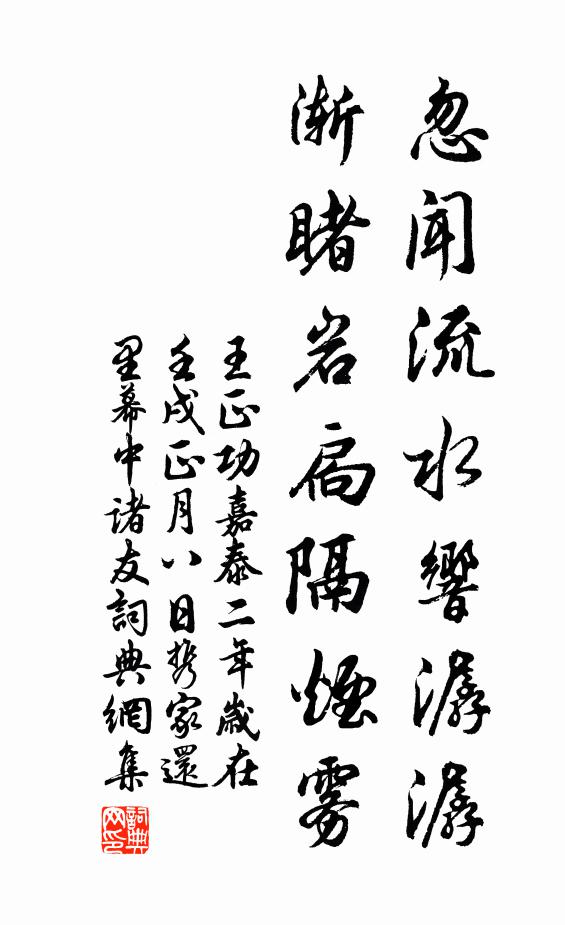 忽聞流水響潺潺
漸睹岩扃隔煙雾
王正功嘉泰二年歲在
壬戌正月八日携家還
里幕中诸友詞典網集
詞典网印